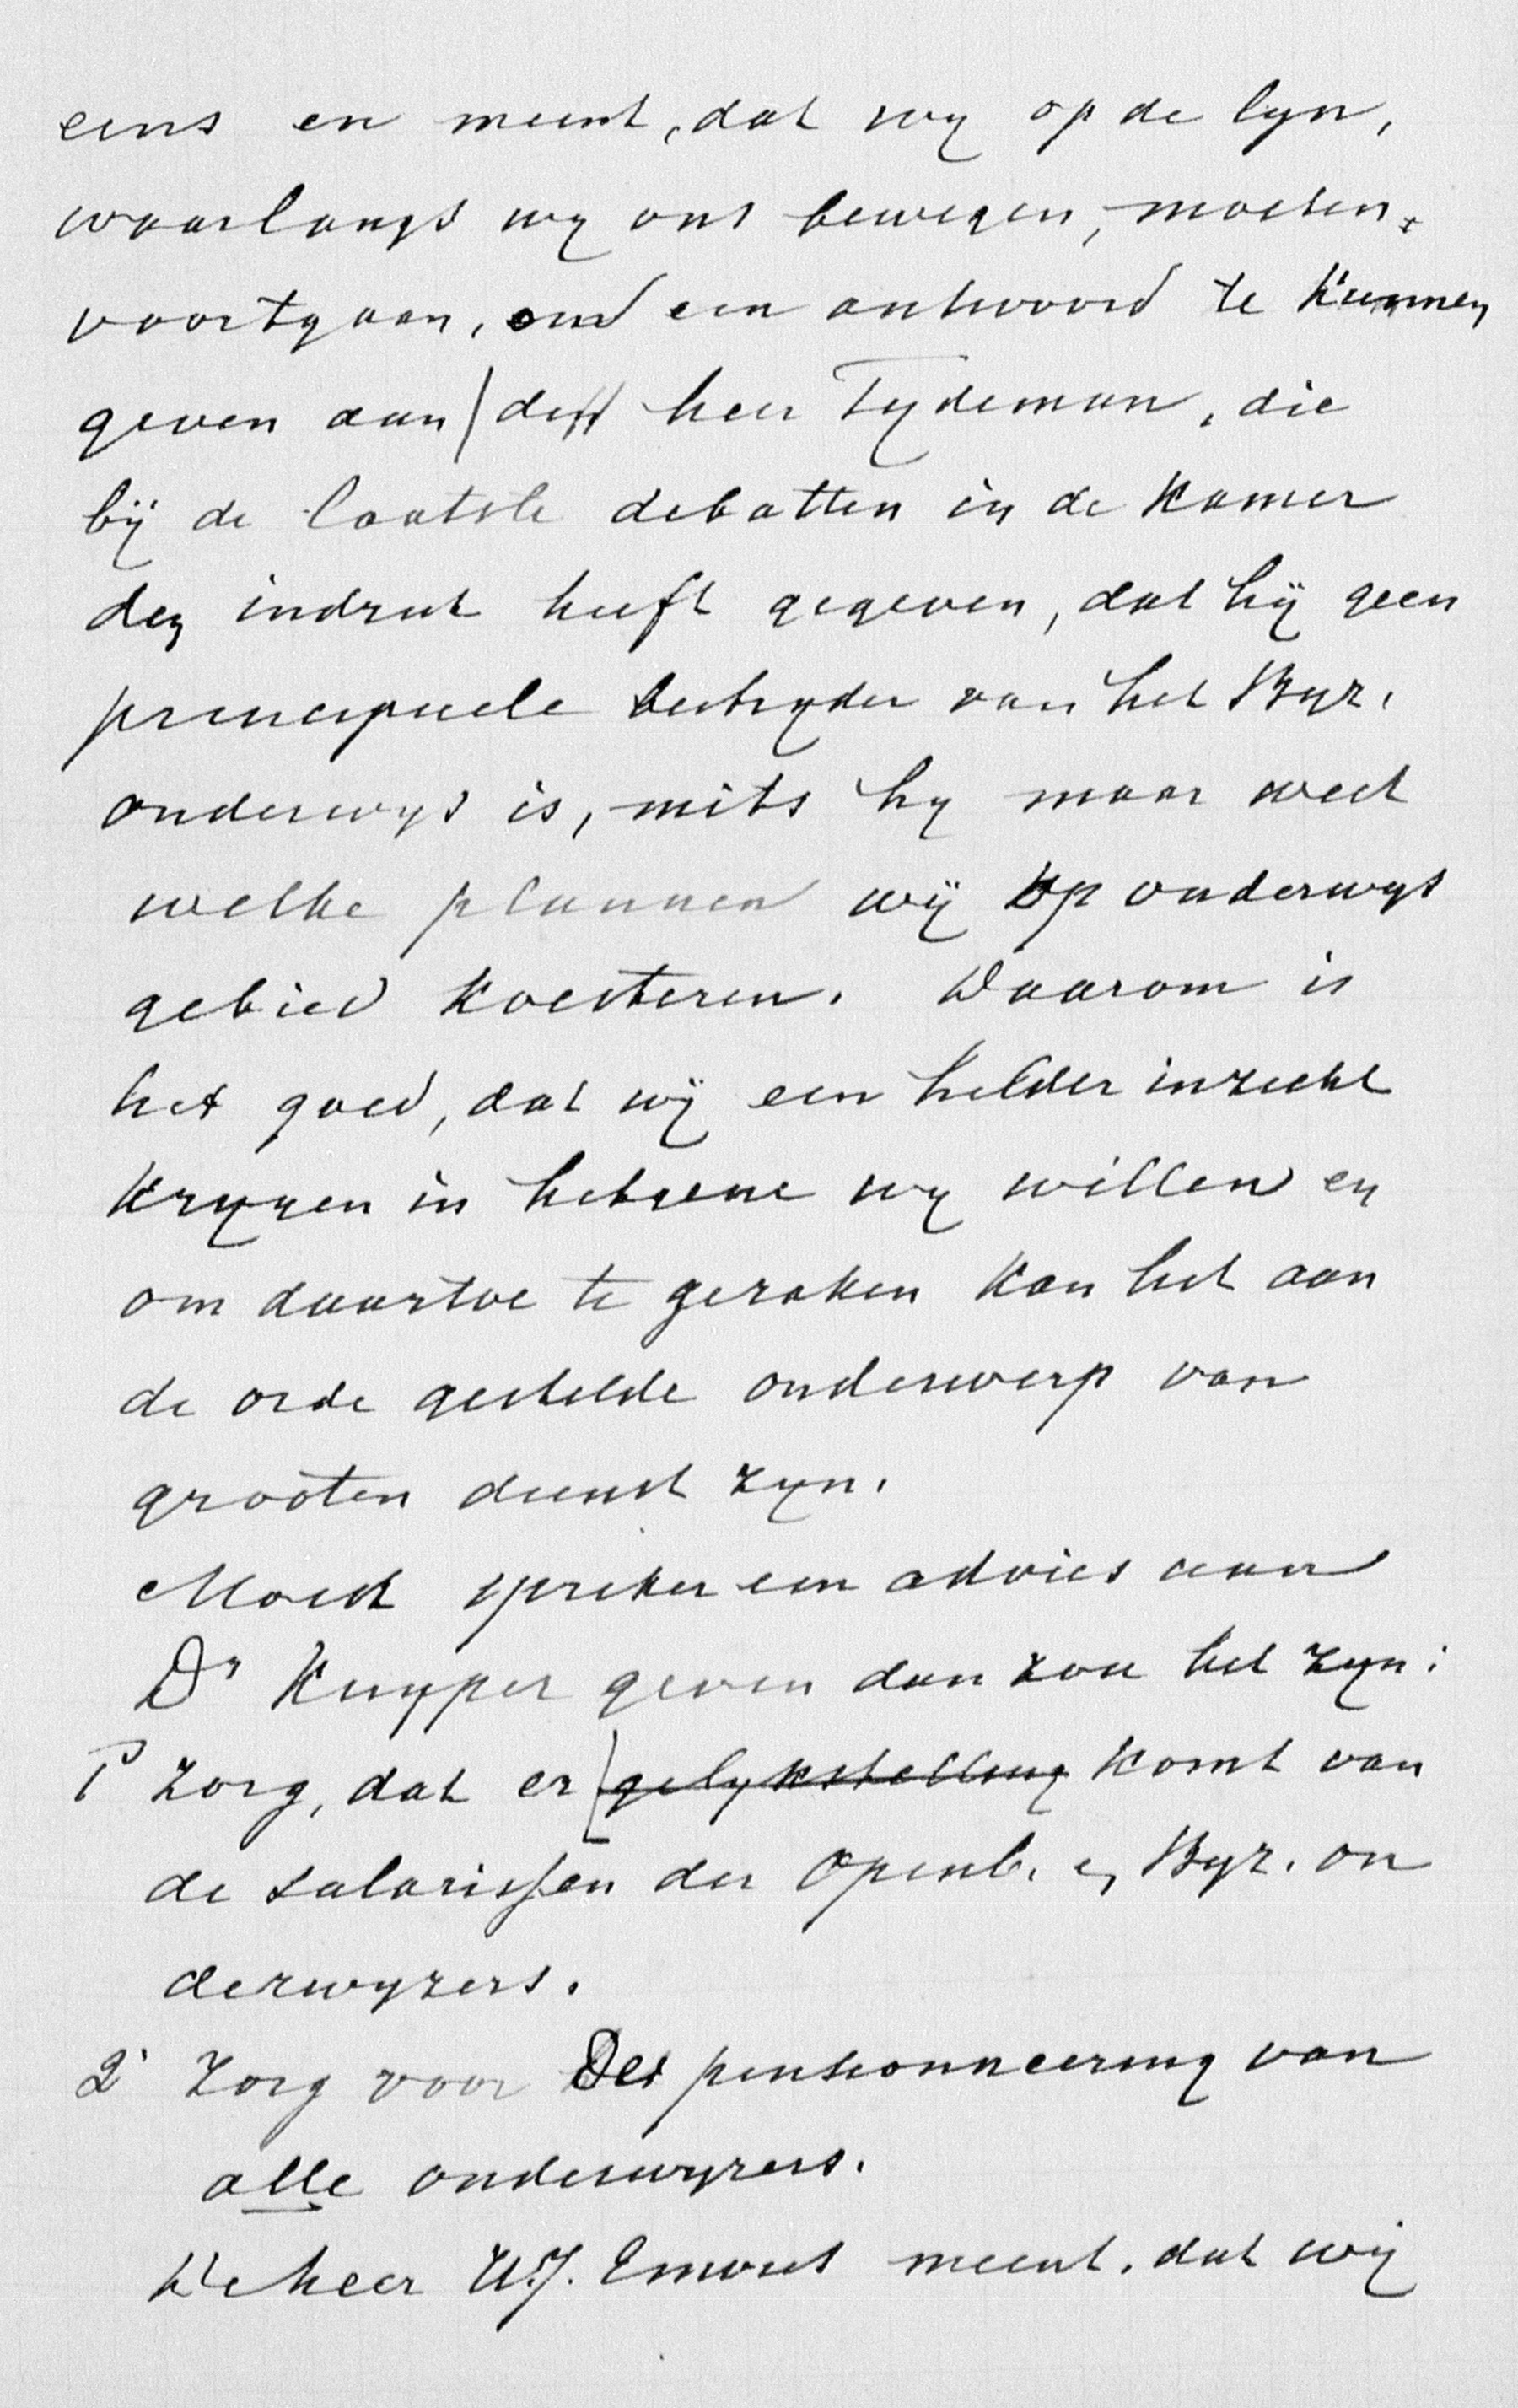 eens en meent, dat wij op de lijn,
waarlangs wij ons bewegen, moeten
voortgaan, om een antwoord te kunnen
geven aan den heer Tydeman, die
bij de laatste debatten in de Kamer
den indruk heeft gegeven, dat hij geen
principieele bestrijder van het Byz.
onderwijs is, mits hij maar weet
welke plannen wij op onderwijs
gebied koesteren. Daarom is
het goed, dat wij een helder inzicht
krijgen in hetgene wij willen en
om daartoe te geraken kan het aan
de orde gestelde onderwerp van
grooten dienst zijn.
Moest spreker een advies aan
Dr Kuyper geven dan zou het zijn:
1° Zorg, dat er gelijkstelling komt van
de salarissen der Openb. en Byz. on
derwijzers.
2° Zorg voor de pensionneering van
alle onderwijzers.
De heer W.J. Emous meent, dat wij